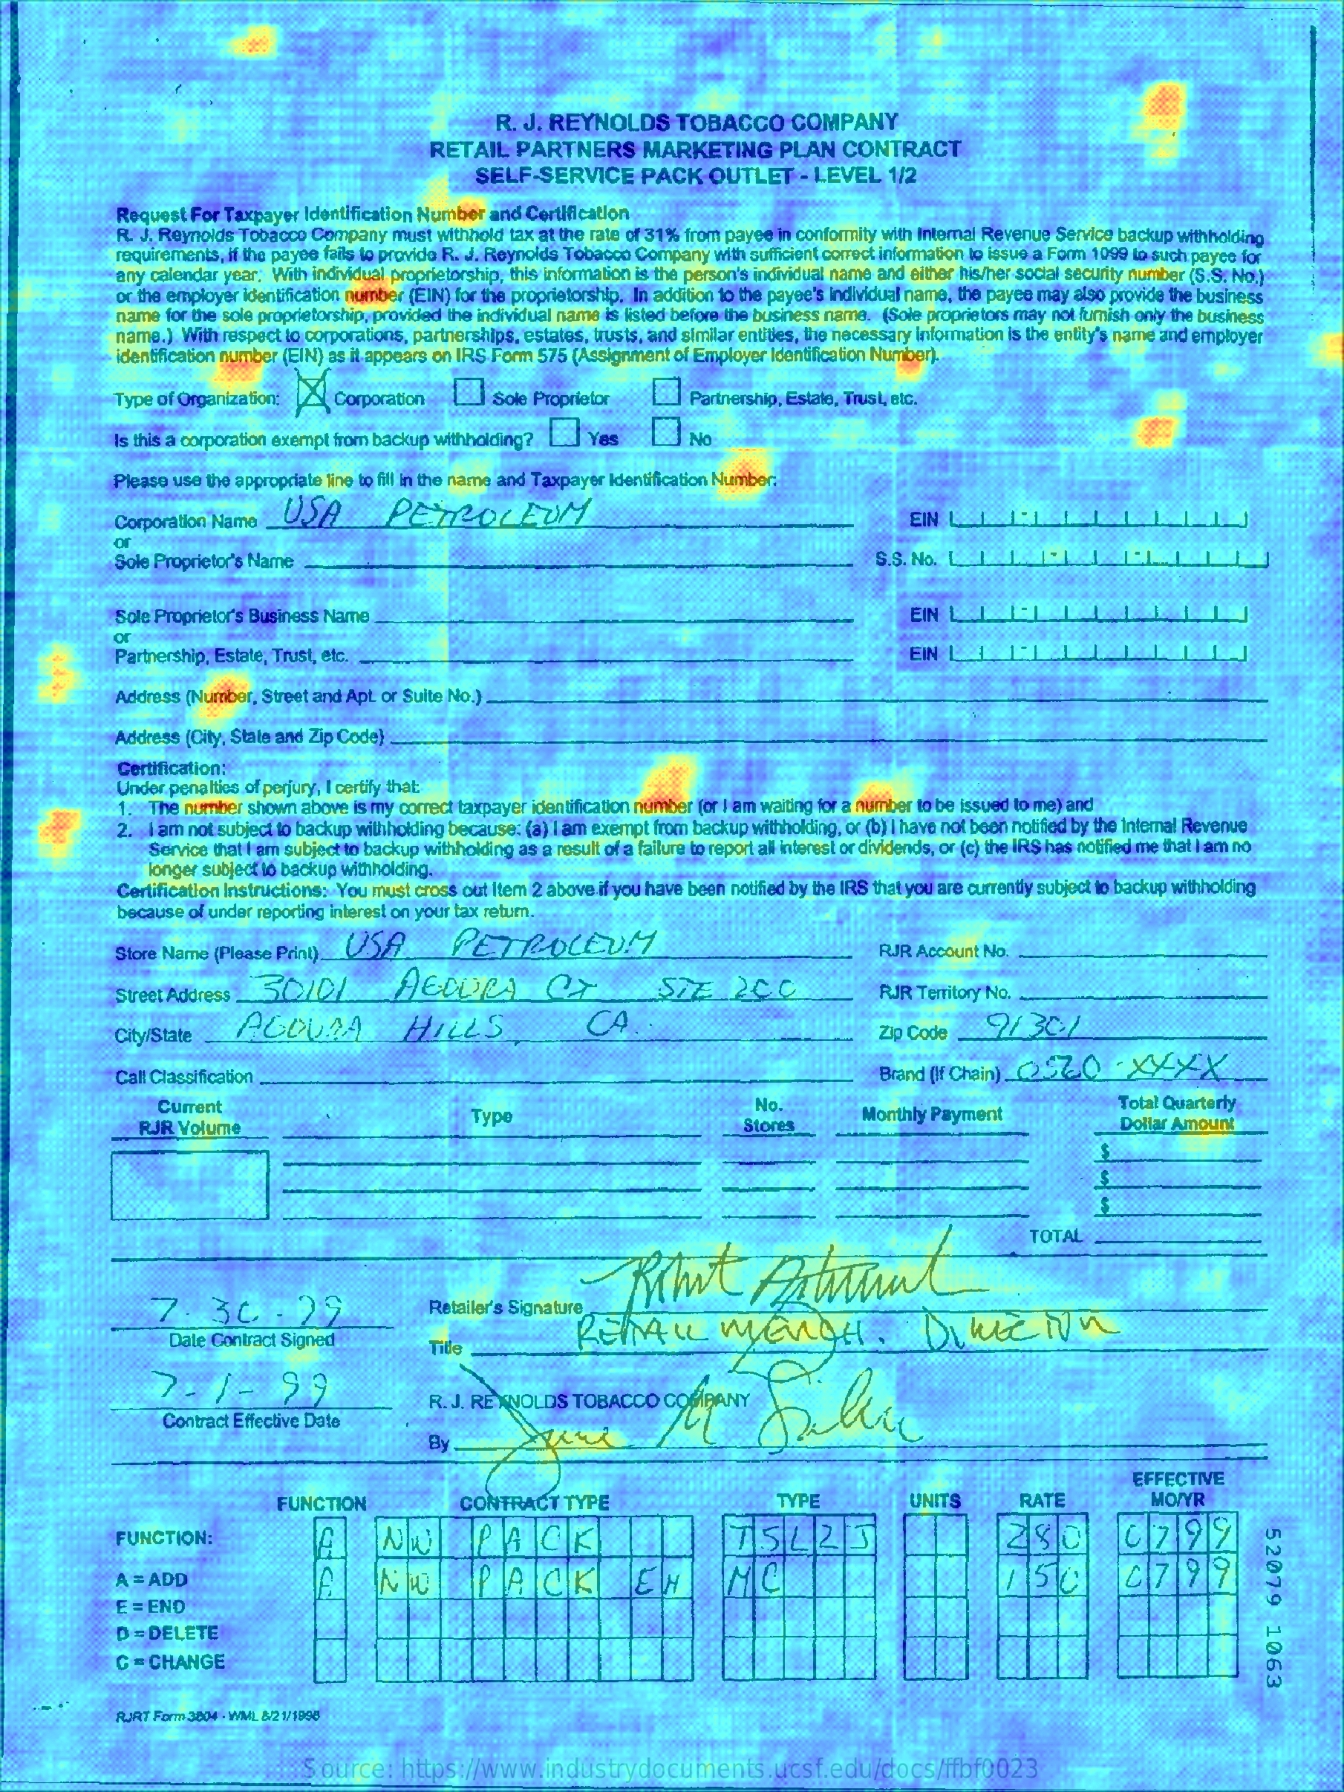 R. J. REYNOLDS TOBACCO COMPANY
RETAIL PARTNERS MARKETING PLAN CONTRACT
SELF-SERVICE PACK OUTLET - LEVEL 1/2
Request For Taxpayer Identification Number and Certification
R. J. Reynolds Tobacco Company must withhold tax at the rate of 31% from payee in conformity with Internal Revenue Service backup withholding
requirements, if the payee fails to provide R. J. Reynolds Tobacco Company with sufficient correct information to issue a Form 1099 to such payee for
any calendar year. With individual proprietorship, this information is the person's individual name and either his/her social security number (S.S. No.)
or the employer identification number (EIN) for the proprietorship. In addition to the payee's individual name, the payee may also provide the business
name for the sole proprietorship, provided the individual name is listed before the business name. (Sole proprietors may not furnish only the business
name.) With respect to corporations, partnerships, estates, trusts, and similar entities, the necessary information is the entity's name and employer
identification number (EIN) as it appears on IRS Form 575 (Assignment of Employer Identification Number).
Type of Organization: X Corporation Sole Proprietor Partnership, Estate, Trust, etc.
Is this a corporation exempt from backup withholding? Yes No
Please use the appropriate line to fill in the name and Taxpayer Identification Number:
Corporation Name USA PETROLEUM EIN
or
Sole Proprietor's Name S.S. No.
Sole Proprietor's Business Name EIN
or
Partnership, Estate, Trust, etc. EIN
Address (Number, Street and Apt. or Suite No.)
Address (City, State and Zip Code)
Certification:
Under penalties of perjury, I certify that:
1. The number shown above is my correct taxpayer identification number (or I am waiting for a number to be issued to me) and
2. I am not subject to backup withholding because: (a) I am exempt from backup withholding, or (b) I have not been notified by the Internal Revenue
Service that I am subject to backup withholding as a result of a failure to report all interest or dividends, or (c) the IRS has notified me that I am no
longer subject to backup withholding.
Certification Instructions: You must cross out Item 2 above if you have been notified by the IRS that you are currently subject to backup withholding
because of under reporting interest on your tax return.
Store Name (Please Print) USA PETROLEUM RJR Account No.
Street Address 30101 AGOURA CT STE 200 RJR Territory No.
City/State AGOURA HILLS, CA. Zip Code 91301
Call Classification Brand (If Chain) 0560-XXXX
Current RJR Volume Type No. Stores Monthly Payment Total Quarterly Dollar Amount
$
$
$
TOTAL
7-30-99 Retailer's Signature Robert
Date Contract Signed Title RETAIL MERCH. DIRECTOR
7-1-99 R. J. REYNOLDS TOBACCO COMPANY
Contract Effective Date By June M
FUNCTION CONTRACT TYPE TYPE UNITS RATE EFFECTIVE MO/YR
FUNCTION: A NW PACK TSL2J 280 0799
A = ADD A NW PACK EH MC 150 0799
E = END
D = DELETE
C = CHANGE
52079 1063
RJRT Form 3804 - WML 8/21/1998
Source: https://www.industrydocuments.ucsf.edu/docs/ffbf0023